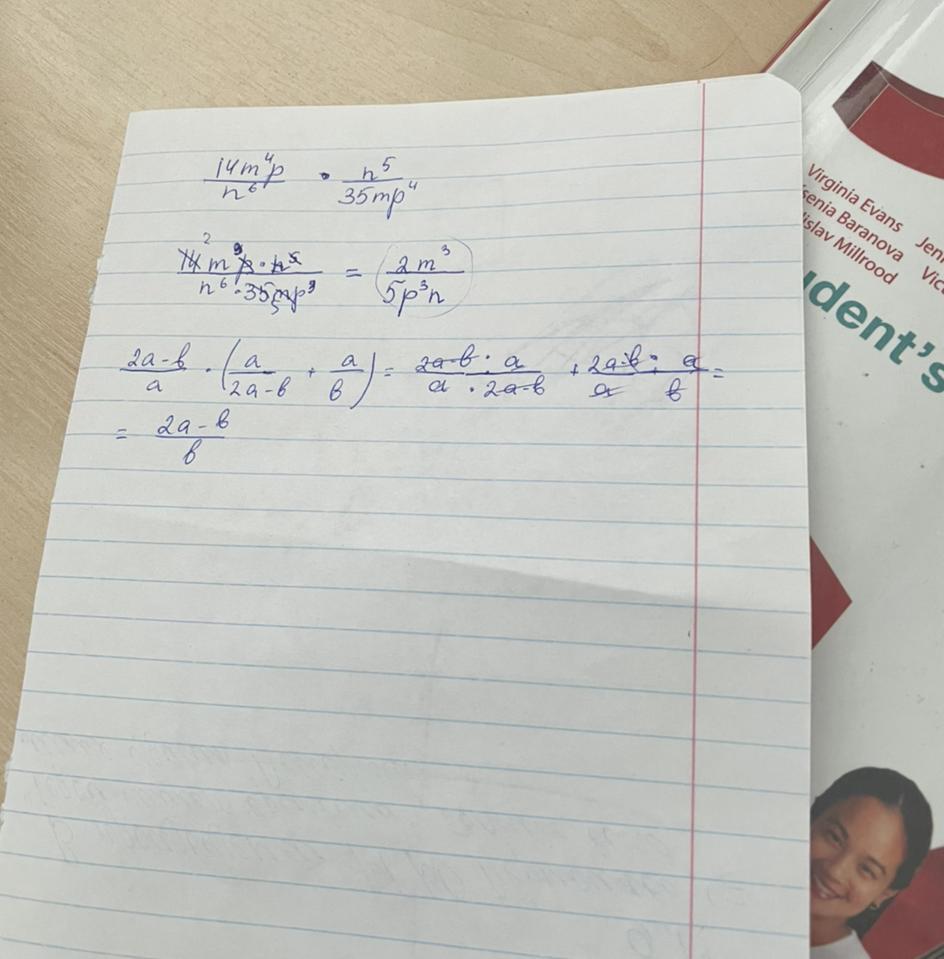 14m⁴p/n⁶ · n⁵/35mp⁴
14² m³p · n⁵/n⁶ · 35₅mp³ = 2m³/5p³n
2a-b/a · (a/2a-b + a/b) = 2a-b · a/a · 2a-b + 2a-b · a/a b =
= 2a-b/b
Virginia Evans Jenn
senia Baranova Vic
islav Millrood
udent's